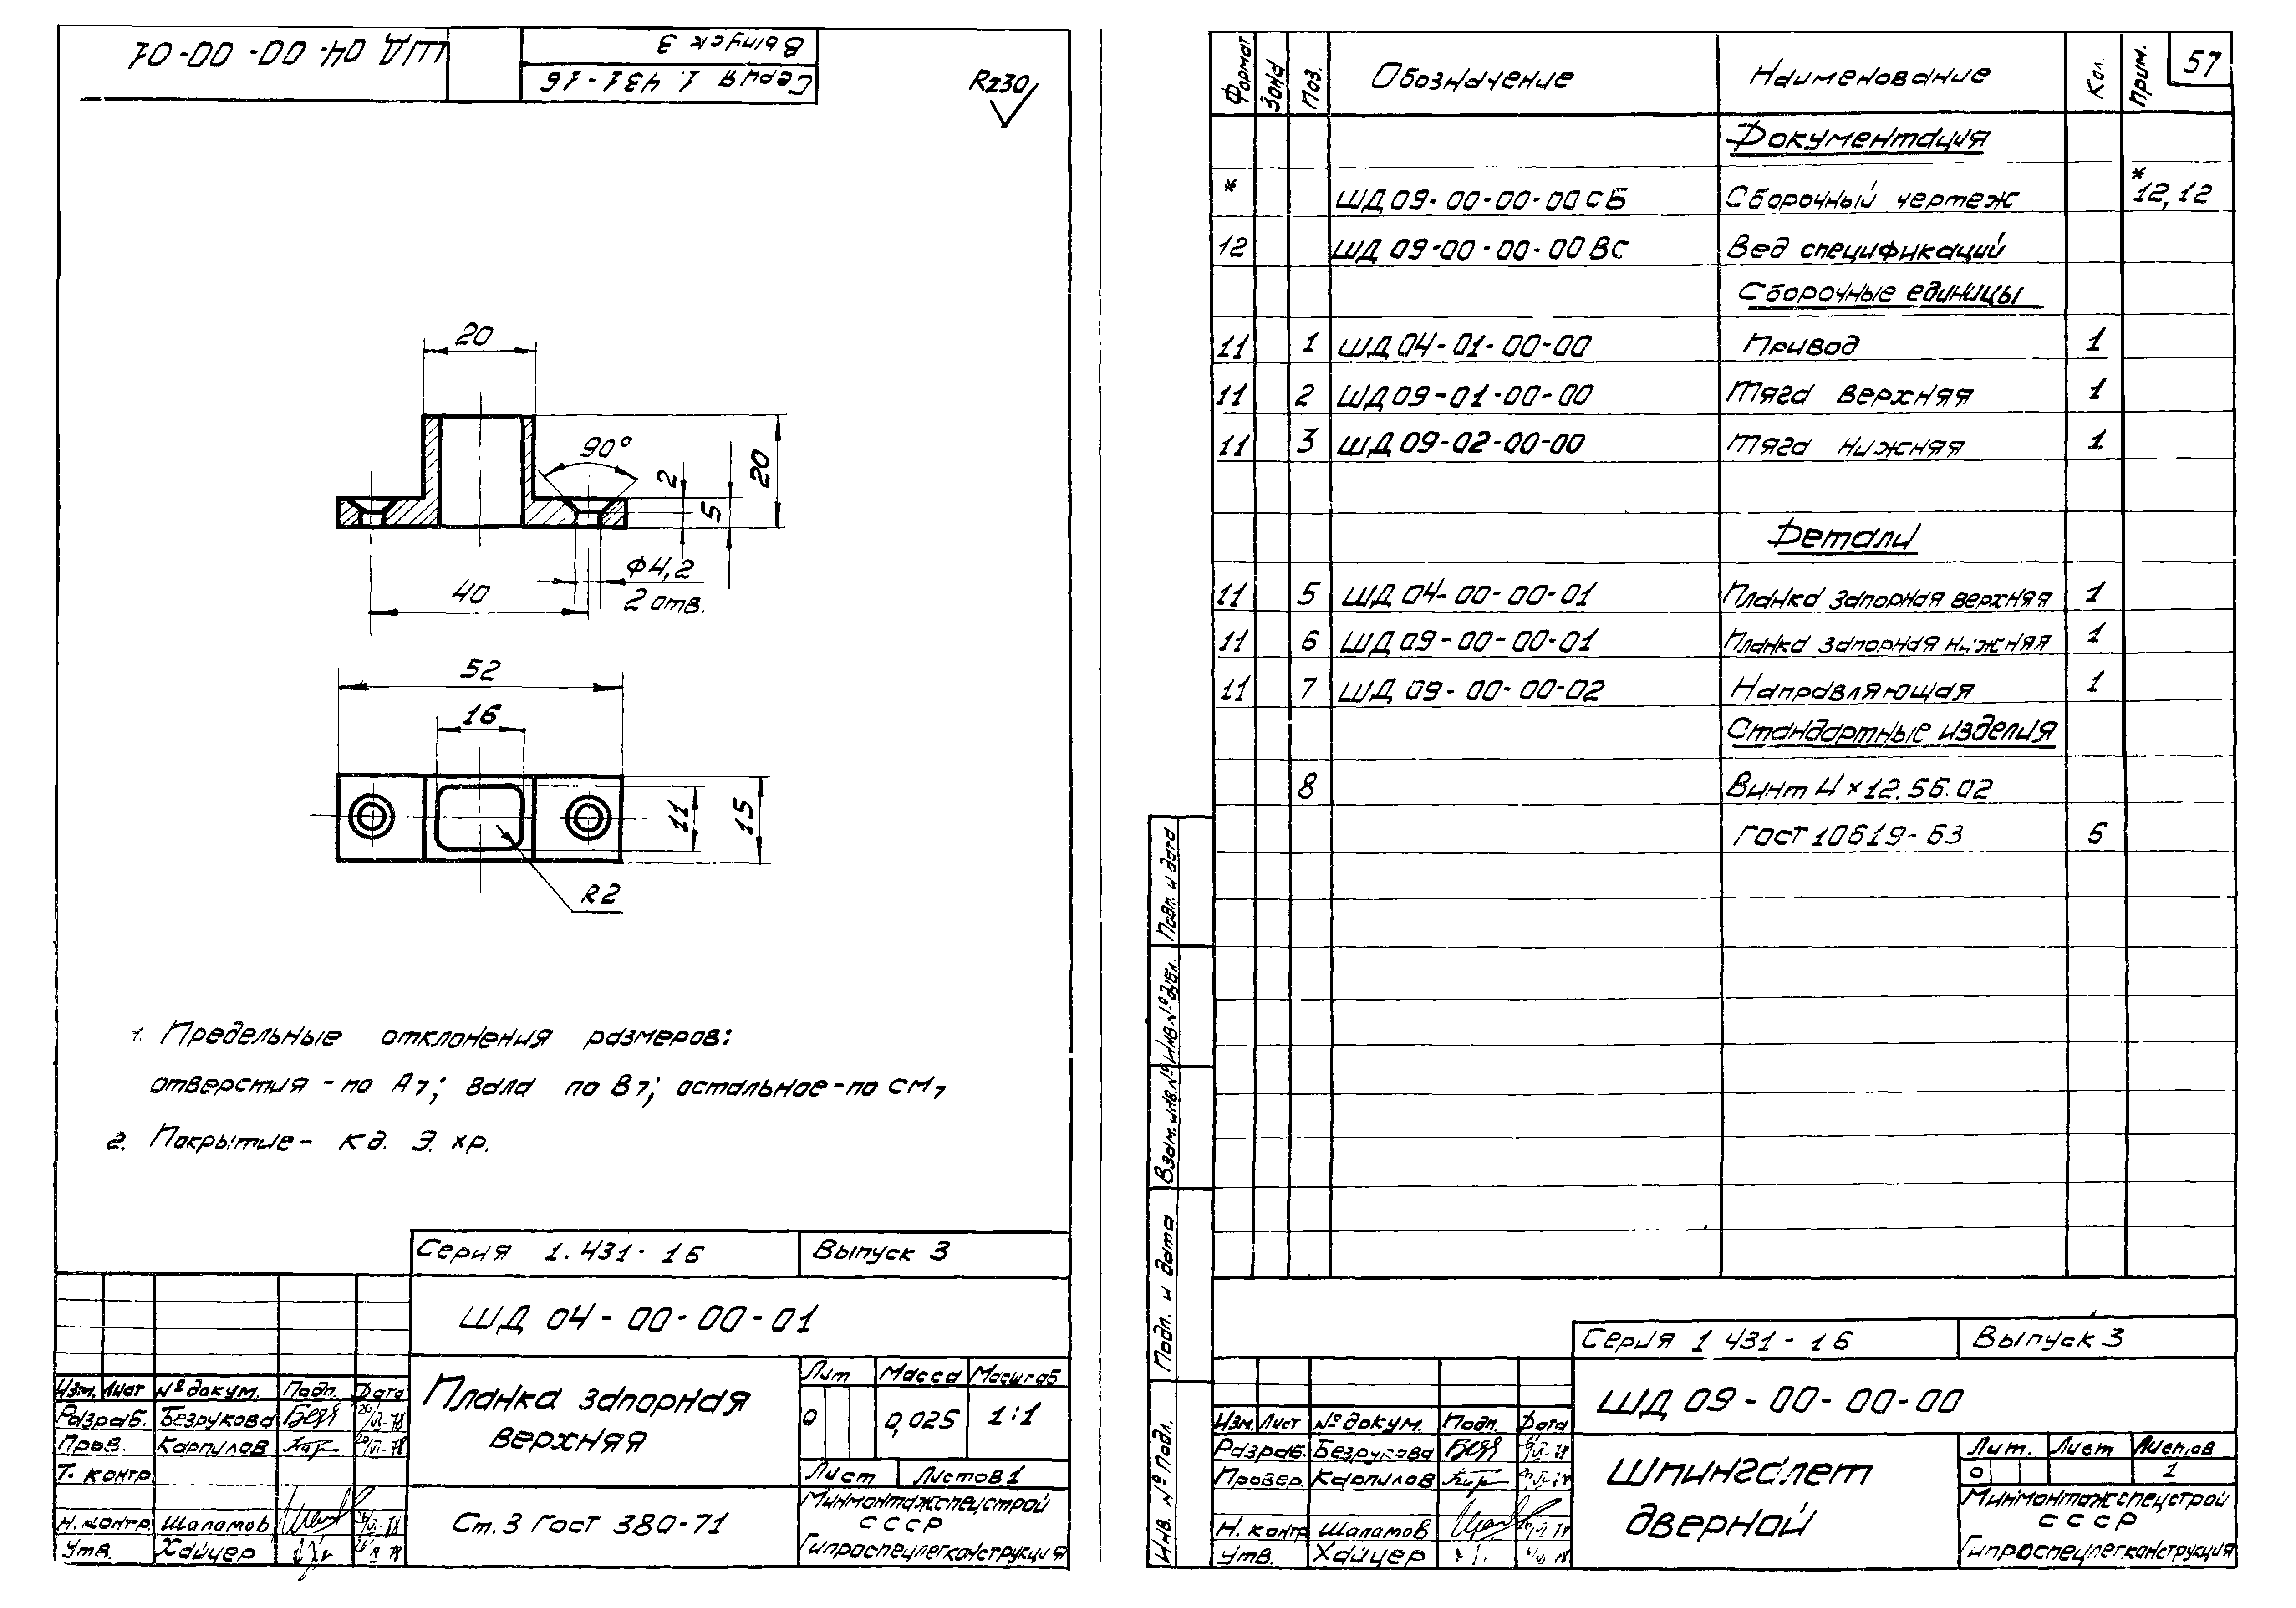 ШД 04-00-00-01
Выпуск 3
Серия 1.431-16
Rz30
20
90°
2
5
20
40
Ф4,2
2 отв.
52
16
11
15
R2
1. Предельные отклонения размеров:
отверстия - по А7; вала по В7; остальное - по СМ7
2. Покрытие - Кд. Э. хр.
Серия 1.431-16 Выпуск 3
ШД 04-00-00-01
Изм. Лист № докум. Подп. Дата
Разраб. Безрукова
Пров. Карпилов
Т. контр.
Н. контр. Шаламов
Утв. Хайцер
Планка запорная
верхняя
Лит Масса Масштаб
О 0,025 1:1
Лист Листов 1
Ст. 3 ГОСТ 380-71
Минмонтажспецстрой
СССР
Гипроспецлегконструкция
57
Формат Зона Поз. Обозначение Наименование Кол. Прим.
Документация
* ШД 09-00-00-00 СБ Сборочный чертеж *12,12
12 ШД 09-00-00-00 ВС Вед спецификаций
Сборочные единицы
11 1 ШД 04-01-00-00 Привод 1
11 2 ШД 09-01-00-00 Тяга верхняя 1
11 3 ШД 09-02-00-00 Тяга нижняя 1
Детали
11 5 ШД 04-00-00-01 Планка запорная верхняя 1
11 6 ШД 09-00-00-01 Планка запорная нижняя 1
11 7 ШД 09-00-00-02 Направляющая 1
Стандартные изделия
8 Винт 4×12.56.02
ГОСТ 10619-63 6
Подп. и дата
Инв № дубл.
Взам. инв. №
Подп. и дата
Инв. № Подл.
Серия 1 431-16 Выпуск 3
ШД 09-00-00-00
Изм. Лист № докум. Подп. Дата
Разраб. Безрукова
Провер. Карпилов
Н. контр Шаламов
Утв. Хайцер
Шпингалет
дверной
Лит. Лист Листов
О 1
Минмонтажспецстрой
СССР
Гипроспецлегконструкция